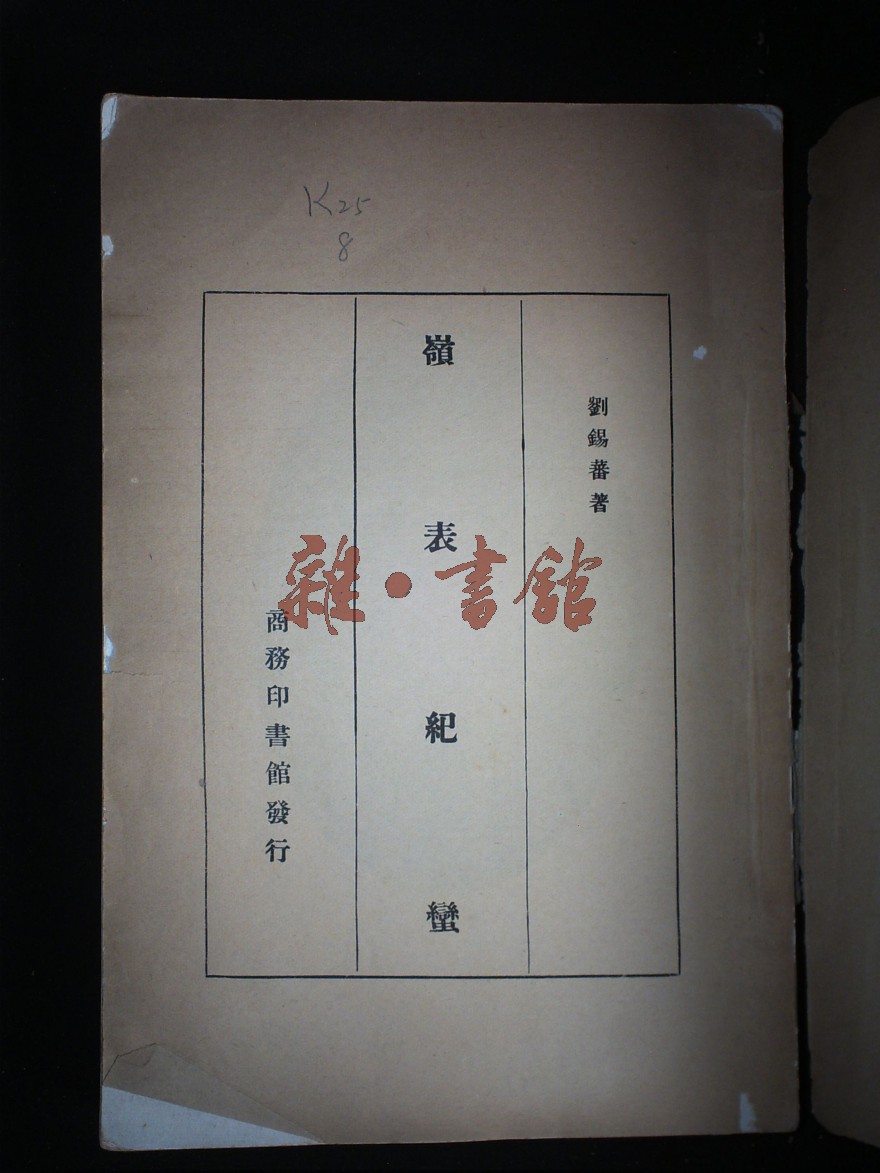 K25
8
劉錫蕃著
嶺表紀蠻
商務印書館發行
雜·書館